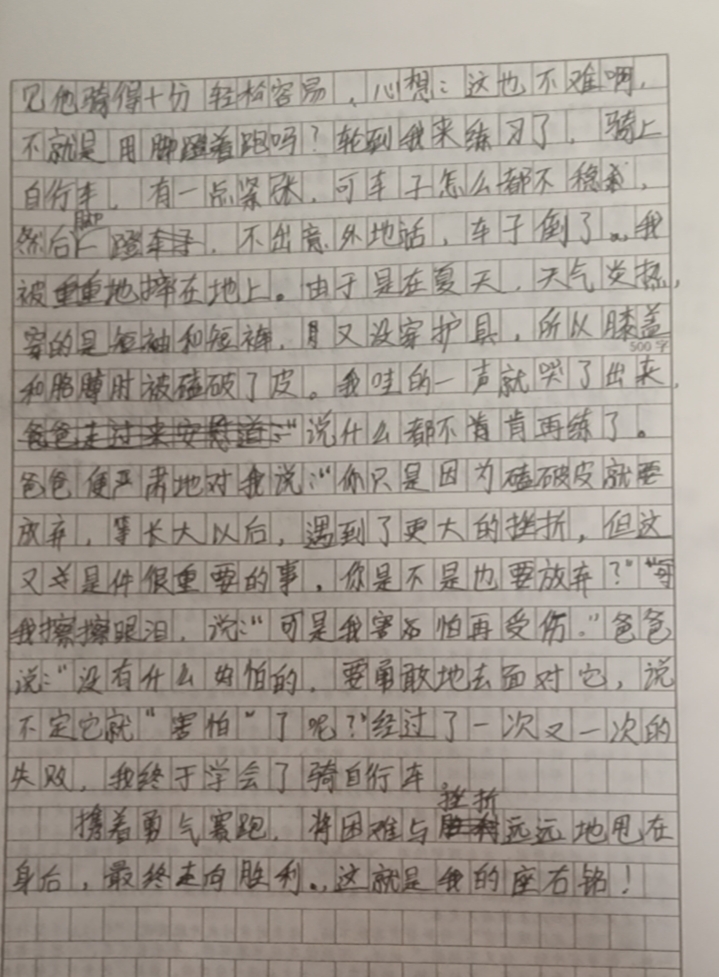 见他骑得十份轻松容易，心想：这也不难啊，
不就是用脚蹬着跑吗？轮到我来练习了，骑上
自行车，有一点紧张，可车子怎么都不稳，
然后脚一蹬，不出意外地话，车子倒了。我
被重重地摔在地上。由于是在夏天，天气炎热，
穿的是短袖和短裤，又没穿护具，所以膝盖
500字
和胳膊肘被磕破了皮。我哇的一声就哭了出来，
说什么都不肯肯再练了。
爸爸便严肃地对我说：“你只是因为磕破皮就要
放弃，等长大以后，遇到了更大的挫折，但这
又是件很重要的事，你是不是也要放弃？”
我擦擦眼泪，说：“可是我害怕再受伤。”爸爸
说：“没有什么好怕的，要勇敢地去面对它，说
不定它就“害怕”了呢？”经过了一次又一次的
失败，我终于学会了骑自行车。
携着勇气赛跑，将困难与挫折远远地甩在
身后，最终走向胜利。这就是我的座右铭！